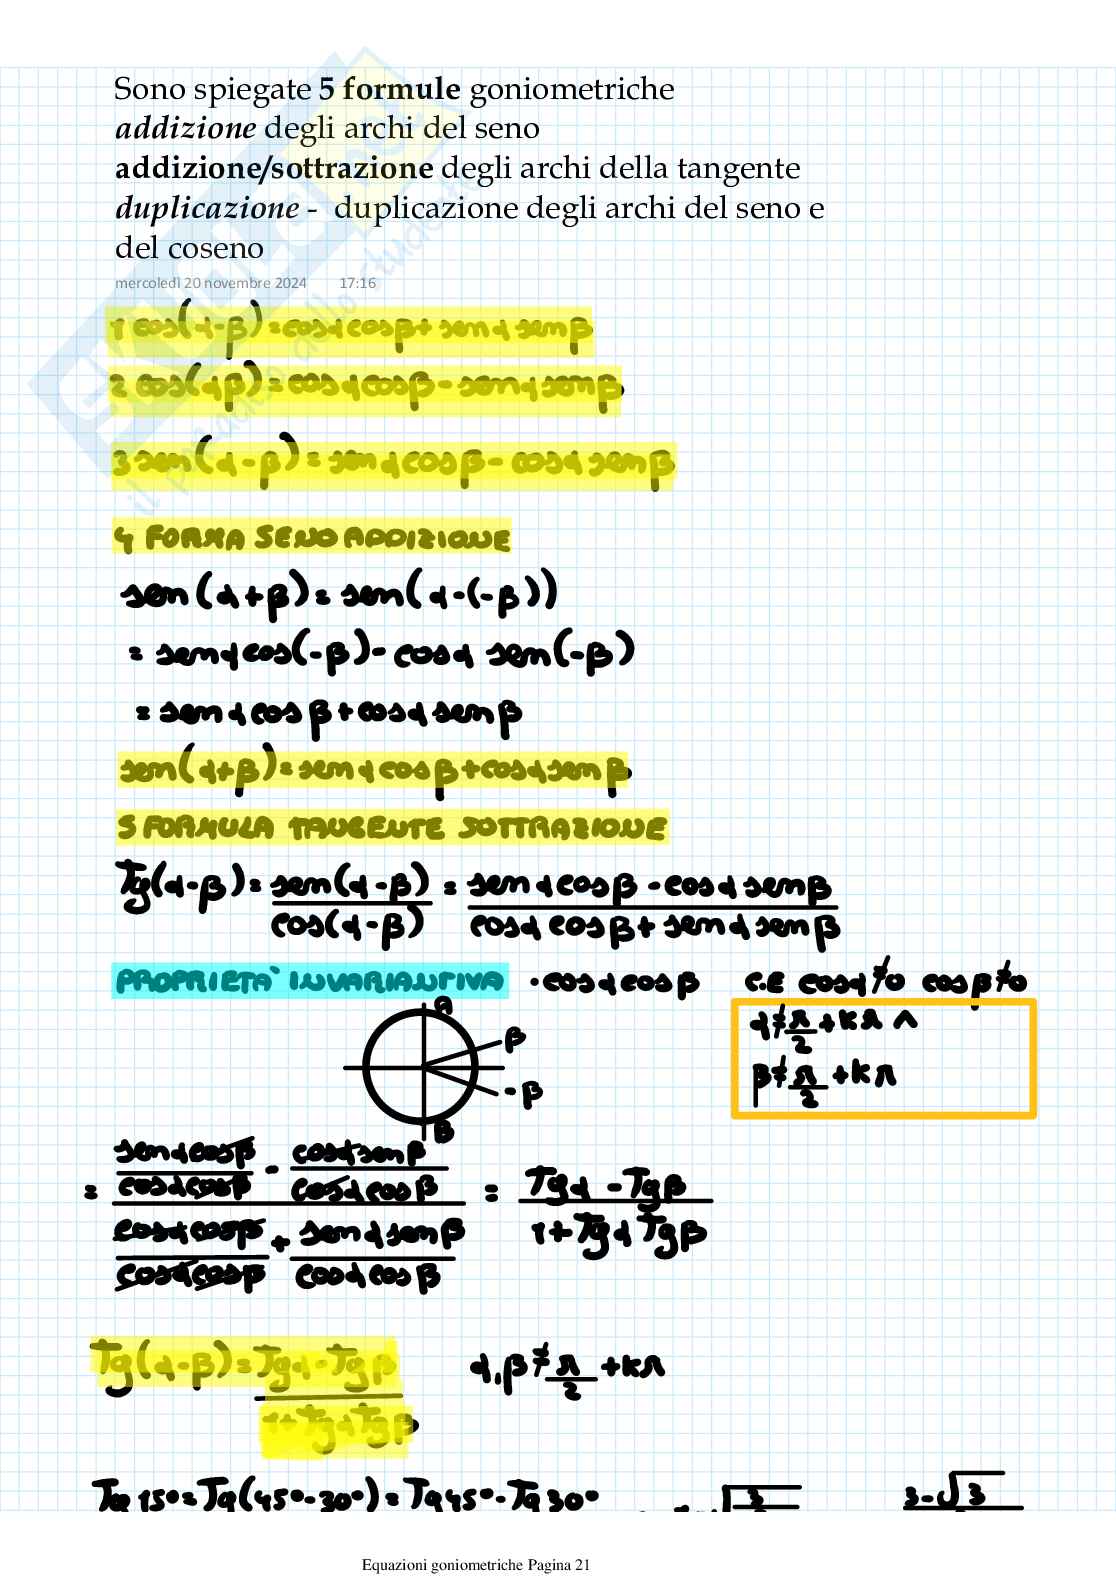 Sono spiegate 5 formule goniometriche
addizione degli archi del seno
addizione/sottrazione degli archi della tangente
duplicazione - duplicazione degli archi del seno e
del coseno
mercoledì 20 novembre 2024 17:16
1 cos(α-β)=cosαcosβ+senαsenβ
2 cos(αβ)=cosαcosβ-senαsenβ
3 sen(α-β)=senαcosβ-cosαsenβ
4 FORMA SENO ADDIZIONE
sen(α+β)=sen(α-(-β))
=senαcos(-β)-cosα sen(-β)
=senαcosβ+cosαsenβ
sen(α+β)=senαcosβ+cosαsenβ
5 FORMULA TANGENTE SOTTRAZIONE
Tg(α-β)= sen(α-β)/cos(α-β) = (senαcosβ-cosαsenβ)/(cosαcosβ+senαsenβ)
PROPRIETA' INVARIANTIVA ·cosαcosβ C.E cosα≠0 cosβ≠0
α≠π/2+kπ ∧
β≠π/2+kπ
A
β
-β
B
= (senαcosβ/cosαcosβ - cosαsenβ/cosαcosβ)/(cosαcosβ/cosαcosβ + senαsenβ/cosαcosβ) = (Tgα-Tgβ)/(1+TgαTgβ)
Tg(α-β)=(Tgα-Tgβ)/(1+TgαTgβ) α,β≠π/2+kπ
Tg15°=Tg(45°-30°)=Tg45°-Tg30° √3 3-√3
Equazioni goniometriche Pagina 21